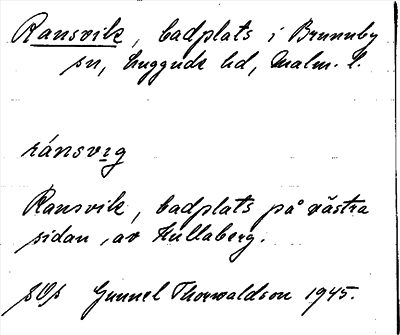 Ransvik, badplats i Brunnby
sn, Luggude hd, Malm. l.
ránsvıg
Ransvik, badplats på västra
sidan av Kullaberg.
Gunnel Thorvaldson 1945.